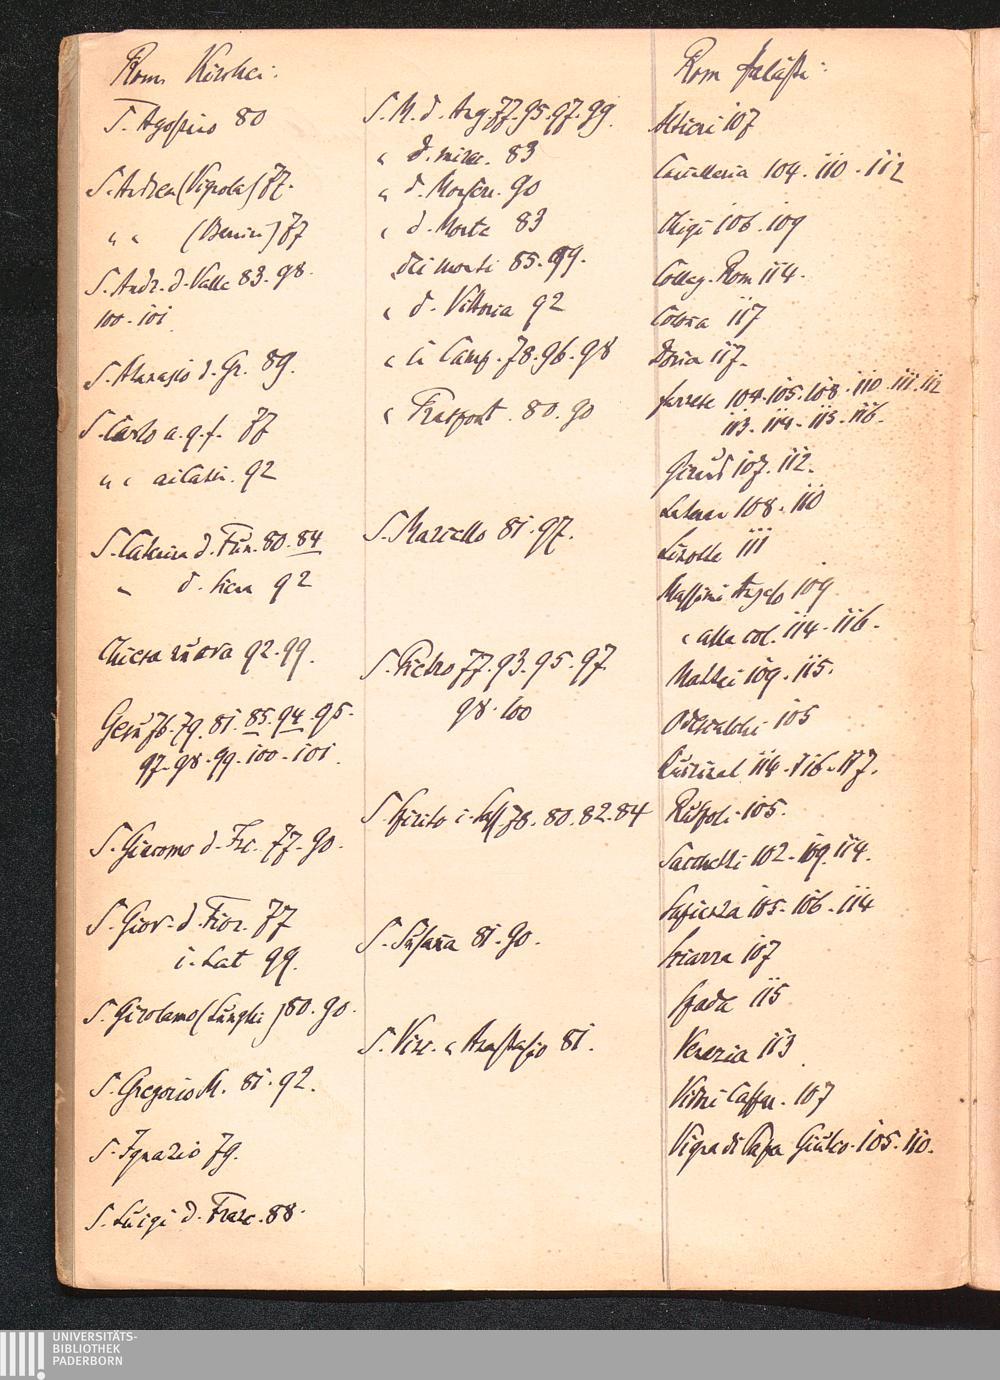 Rom, Kirchen:
S. Agostino 80
S. Andrea (Vignola) 77.
" " (Bernini) 77
S. Andr. d. Valle 83. 98.
100. 101.
S. Atanasio d. Gr. 89.
S. Carlo a. q. f. 77
" " ai Catin. 92
S. Caterina d. Fun. 80. 84
" d. Siena 92
Chiesa nuova 92. 99.
Gesù 76. 79. 81. 85. 94. 95.
97. 98. 99. 100. 101.
S. Giacomo d. Inc. 77. 90.
S. Giov. d. Fior. 77
i. Lat 99.
S. Girolamo (Lunghi) 80. 90.
S. Gregorio M. 81. 92.
S. Ignazio 79.
S. Luigi d. Franc. 88.
S. M. d. Ang. 77. 95. 97. 99.
" d. mirac. 83
" d. Monserr. 90
" d. Morte 83
" dei monti 85. 99.
" d. Vittoria 92
" in Camp. 78. 96. 98
" Traspont. 80. 90
S. Marcello 81. 97.
S. Pietro 77. 93. 95. 97.
98. 100
S. Spirito i. Sass 78. 80. 82. 84
S. Susanna 81. 90.
S. Vinc. " Anastasio 81.
Rom Paläste:
Altieri 107
Cancelleria 104. 110. 112
Chigi 106. 109
Colleg. Rom 114.
Colonna 117
Doria 117.
Farnese 104. 105. 108. 110. 111. 112
113. 114. 115. 116.
Giraud 107. 112.
Lateran 108. 110
Linotte 111
Massimi Angelo 109
" alle col. 114. 116.
Mattei 109. 115.
Odescalchi 105
Quirinal 114. 116. 117.
Ruspoli 105.
Sacchetti 102. 109. 114.
Sapienza 105. 106. 114
Sciarra 107
Spada 115
Venezia 113
Vidoni Caffar. 107
Vigna di Papa Giulio. 105. 110.
UNIVERSITÄTS-
BIBLIOTHEK
PADERBORN